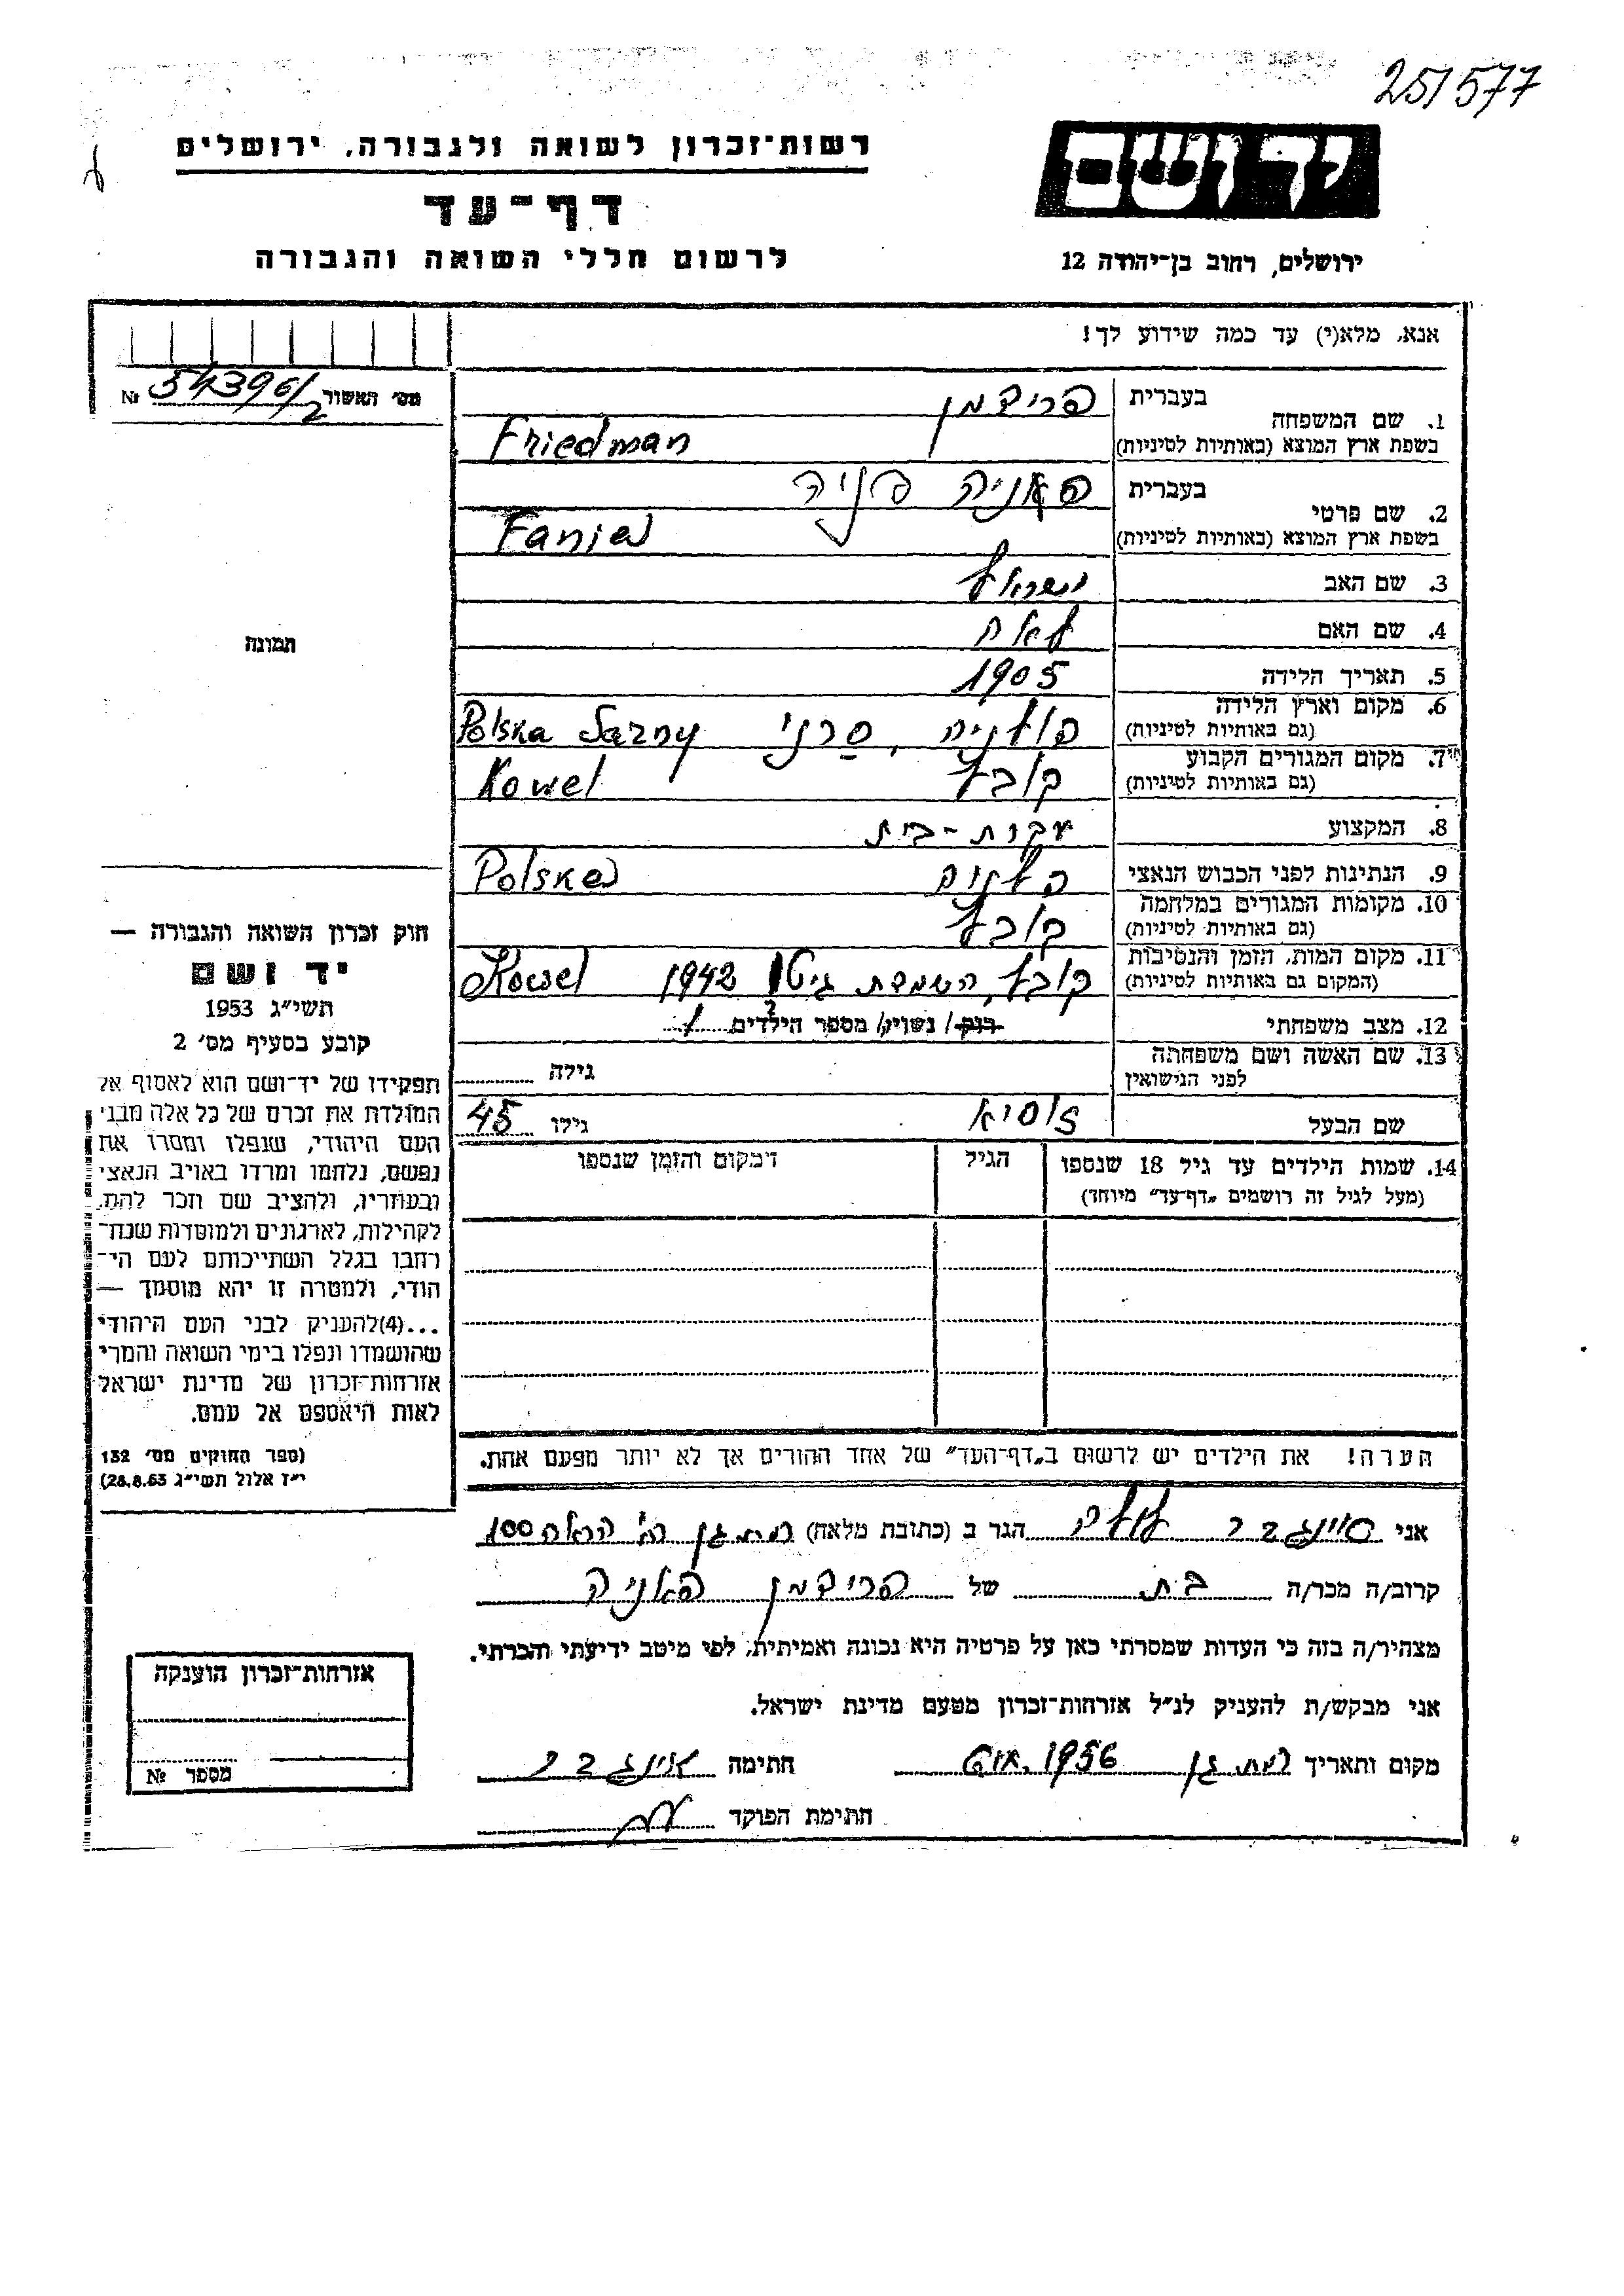 25/577
רשות־זכרון לשואה ולגבורה, ירושלים
דף־עד
לרשום חללי השואה והגבורה
יד ושם
ירושלים, רחוב בן־יהודה 12
אנא, מלא(י) עד כמה שידוע לך!
מס׳ האשור 54396/2 №
בעברית פרידמן
1. שם המשפחה
בשפת ארץ המוצא (באותיות לטיניות) Friedman
בעברית פאניה פניה
2. שם פרטי
בשפת ארץ המוצא (באותיות לטיניות) Fania
3. שם האב ישראל
4. שם האם לאה
5. תאריך הלידה 1905
6. מקום וארץ הלידה פולניה, סרני Polska Sarny
(גם באותיות לטיניות)
7. מקום המגורים הקבוע קובל Kowel
(גם באותיות לטיניות)
8. המקצוע עקרת-בית
9. הנתינות לפני הכבוש הנאצי Polska
10. מקומות המגורים במלחמה קובל
(גם באותיות לטיניות)
11. מקום המות, הזמן והנסיבות קובל, השמדת גיטו 1942 Kowel
(המקום גם באותיות לטיניות)
12. מצב משפחתי רוק/ נשוי/ מספר הילדים
13. שם האשה ושם משפחתה
לפני הנישואין גילה
שם הבעל גילו 45
14. שמות הילדים עד גיל 18 שנספו הגיל המקום והזמן שנספו
(מעל לגיל זה רושמים „דף־עד״ מיוחד)
תמונה
חוק זכרון השואה והגבורה —
יד ושם
תשי״ג 1953
קובע בסעיף מס׳ 2
תפקידו של יד־ושם הוא לאסוף אל
המולדת את זכרם של כל אלה מבני
העם היהודי, שנפלו ומסרו את
נפשם, נלחמו ומרדו באויב הנאצי
ובעוזריו, ולהציב שם וזכר להם,
לקהילות, לארגונים ולמוסדות שנח־
רבו בגלל השתייכותם לעם הי־
הודי, ולמטרה זו יהא מוסמך —
...(4)להעניק לבני העם היהודי
שהושמדו ונפלו בימי השואה והמרי
אזרחות־זכרון של מדינת ישראל
לאות היאספם אל עמם.
(ספר החוקים מס׳ 132
י״ז אלול תשי״ג 28.8.53)
הערה! את הילדים יש לרשום ב„דף־העד״ של אחד ההורים אך לא יותר מפעם אחת.
אני הגר ב (כתובת מלאה) רמת גן הרא״ה 100
קרוב/ה מכר/ה בת של פרידמן פאניה
מצהיר/ה בזה כי העדות שמסרתי כאן על פרטיה היא נכונה ואמיתית, לפי מיטב ידיעתי והכרתי.
אני מבקש/ת להעניק לנ״ל אזרחות־זכרון מטעם מדינת ישראל.
מקום ותאריך רמת גן 1956 חתימה
חתימת הפוקד
אזרחות־זכרון הוענקה
מספר №